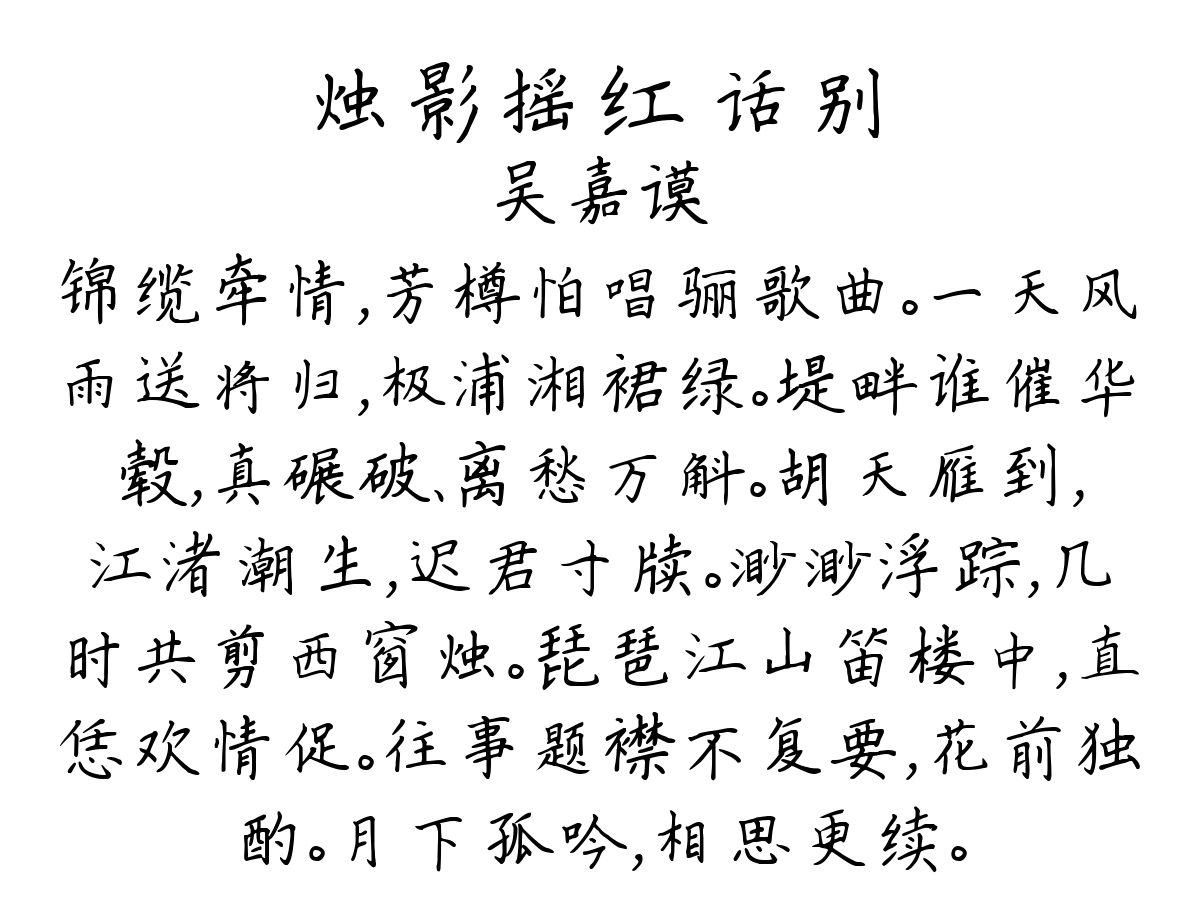 烛影摇红 话别
吴嘉谟
锦缆牵情,芳樽怕唱骊歌曲。一天风
雨送将归,极浦湘裙绿。堤畔谁催华
毂,真碾破、离愁万斛。胡天雁到,
江渚潮生,迟君寸牍。渺渺浮踪,几
时共剪西窗烛。琵琶江山笛楼中,直
恁欢情促。往事题襟不复要,花前独
酌。月下孤吟,相思更续。